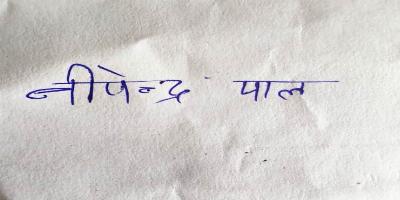 नीपेन्द्र पाल